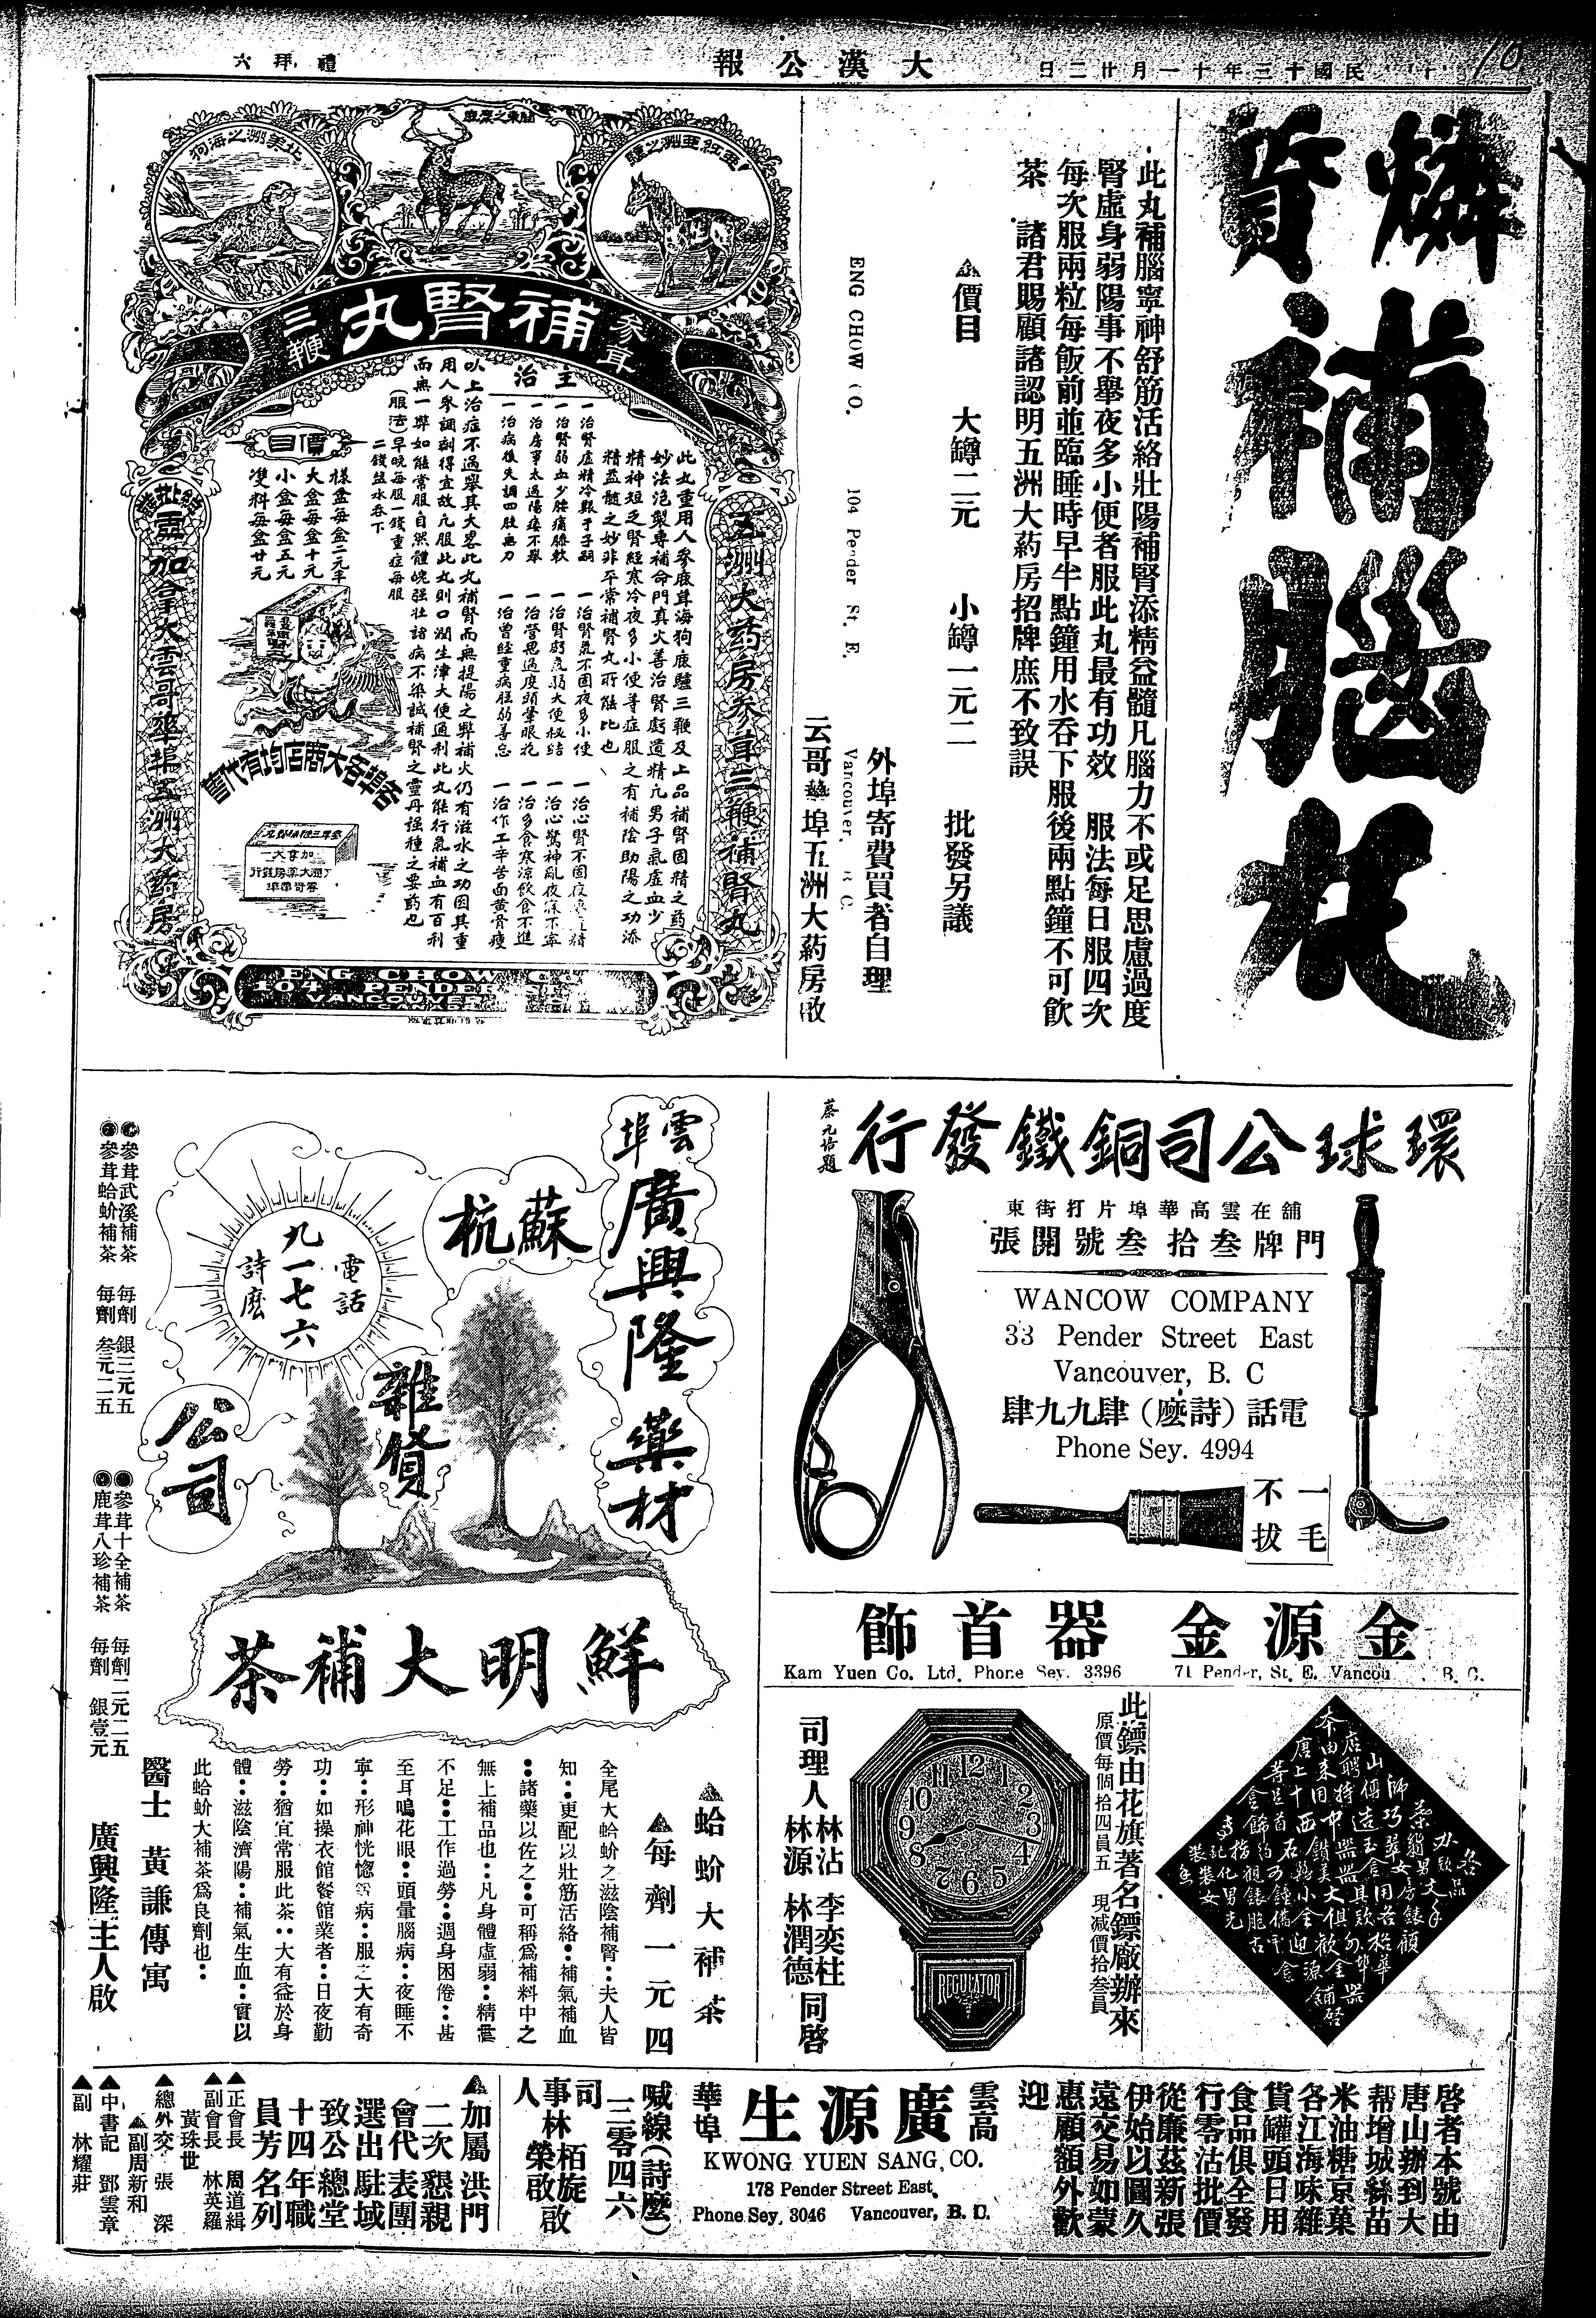 民國十三年十一月廿二日
大漢公報
禮拜六
燐質補腦丸
此丸補腦寧神舒筋活絡壯陽補腎添精益髓凡腦力不或足思慮過度
腎虛身弱陽事不舉夜多小便者服此丸最有功效　服法每日服四次
每次服兩粒每飯前並臨睡時早半點鐘用水吞下服後兩點鐘不可飲
茶　諸君賜顧諸認明五洲大葯房招牌庶不致誤
▲價目　大罇二元　小罇一元二　批發另議
外埠寄費買者自理
ENG CHOW CO. 104 Pender St. E. Vancouver, B C
云哥華埠五洲大葯房啟
北美洲之海狗
關東之梅鹿
參茸
補腎丸
三鞭
五洲大葯房參茸三鞭補腎丸
此丸重用人參鹿茸海狗鹿驢三鞭及上品補腎固精之葯
妙法泡製專補命門真火善治腎虧遺精凢男子氣虛血少
精神短乏腎經寒冷夜多小便等症服之有補陰助陽之功添
精益髓之妙非平常補腎丸所能比也
主治
一治腎虛精冷艱于子嗣
一治腎弱血少腰痛膝軟
一治房事太過陽痿不舉
一治病後失調四肢無力
一治腎氣不固夜多小便
一治腎虧氣弱大便秘結
一治營思過度頭暈眼花
一治曾經重病脛弱善忘
一治心驚神亂夜寐不寧
一治多食寒涼飲食不進
一治作工辛苦面黃骨瘦
以上治症不過舉其大畧此丸補腎而無提陽之弊補火仍有滋水之功因其重
用人參調劑得宜故凢服此丸則口潤生津大便通利此丸能行氣補血有百利
而無一弊如能常服自然體魄强壯諸病不染誠補腎之靈丹强種之要葯也
(服法)早晚每服一錢重症每服
二錢盐水吞下
價目
樣盆每盒二元半
大盒每盒十元
小盒每盒五元
雙料每盒廿元
各埠各大商店均有代售
雲加拿大雲哥華埠五洲大葯房
ENG CHOW CO
104 PENDER
VANCOUVER
環球公司銅鐵發行
蔡元培題
舖在雲高華埠片打街東
門牌叁拾叁號開張
WANCOW COMPANY
33 Pender Street East
Vancouver, B. C
電話(詩麼)肆九九肆
Phone Sey. 4994
一毛
不拔
雲埠
廣興隆藥材
蘇杭
雜貨
公司
電話
九一七六
詩麼
鮮明大補茶
參茸武溪補茶　每劑　銀三元五
參茸蛤蚧補茶　每劑　叁元二五
參茸十全補茶　每劑二元二五
鹿茸八珍補茶　每劑　銀壹元
▲蛤蚧大補茶
▲每劑一元四
全尾大蛤蚧之滋陰補腎：夫人皆
知：更配以壯筋活絡：補氣補血
：諸藥以佐之：可稱爲補料中之
無上補品也：凡身體虛弱：精靈
不足：工作過勞：週身困倦：甚
至耳鳴花眼：頭暈腦病：夜睡不
寧：形神恍惚等病：服之大有奇
功：如操衣館餐館業者：日夜勤
勞：猶宜常服此茶：大有益於身
體：滋陰濟陽：補氣生血：實以
此蛤蚧大補茶爲良劑也：
醫士　黃謙傳寓
廣興隆主人啟
金源金器首飾
Kam Yuen Co. Ltd. Phone Sey. 3396　71 Pender, St. E. Vancou B. C.
此鏢由花旗著名鏢廠辦來
原價每個拾四員五　現减價拾叁員
12 1 2 3 4 5 6 7 8 9 10 11
REGULATOR
司理人
林沾　李奕柱
林源　林潤德
同啓
啓者本號由
唐山辦到大
帮增城絲苗
米油糖京菓
各江海味雜
貨罐頭日用
食品俱全發
行零沽批價
從廉茲新張
伊始以圖久
遠交易如蒙
惠顧額外歡
迎
雲高
廣源生
華埠
KWONG YUEN SANG, CO.
178 Pender Street East,
Phone Sey. 3046　Vancouver, B. C.
喊線(詩麼)
三零四六
司
事林　栢旋
人　榮啟　啟
▲加屬洪門
二次懇親
會代表團
選出駐域
致公總堂
十四年職
員芳名列
▲正會長　周道緝
▲副會長　林英羅
黃珠世
▲總外交　張深
▲副周新和
▲中書記　鄧雲章
▲副　林耀莊